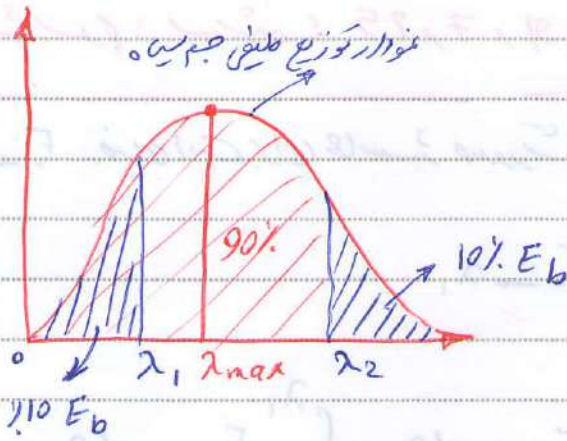 نمودار توزیع طیفی جسم سیاه
90%
10% E_b
0
λ₁
λmax
λ₂
%10 E_b